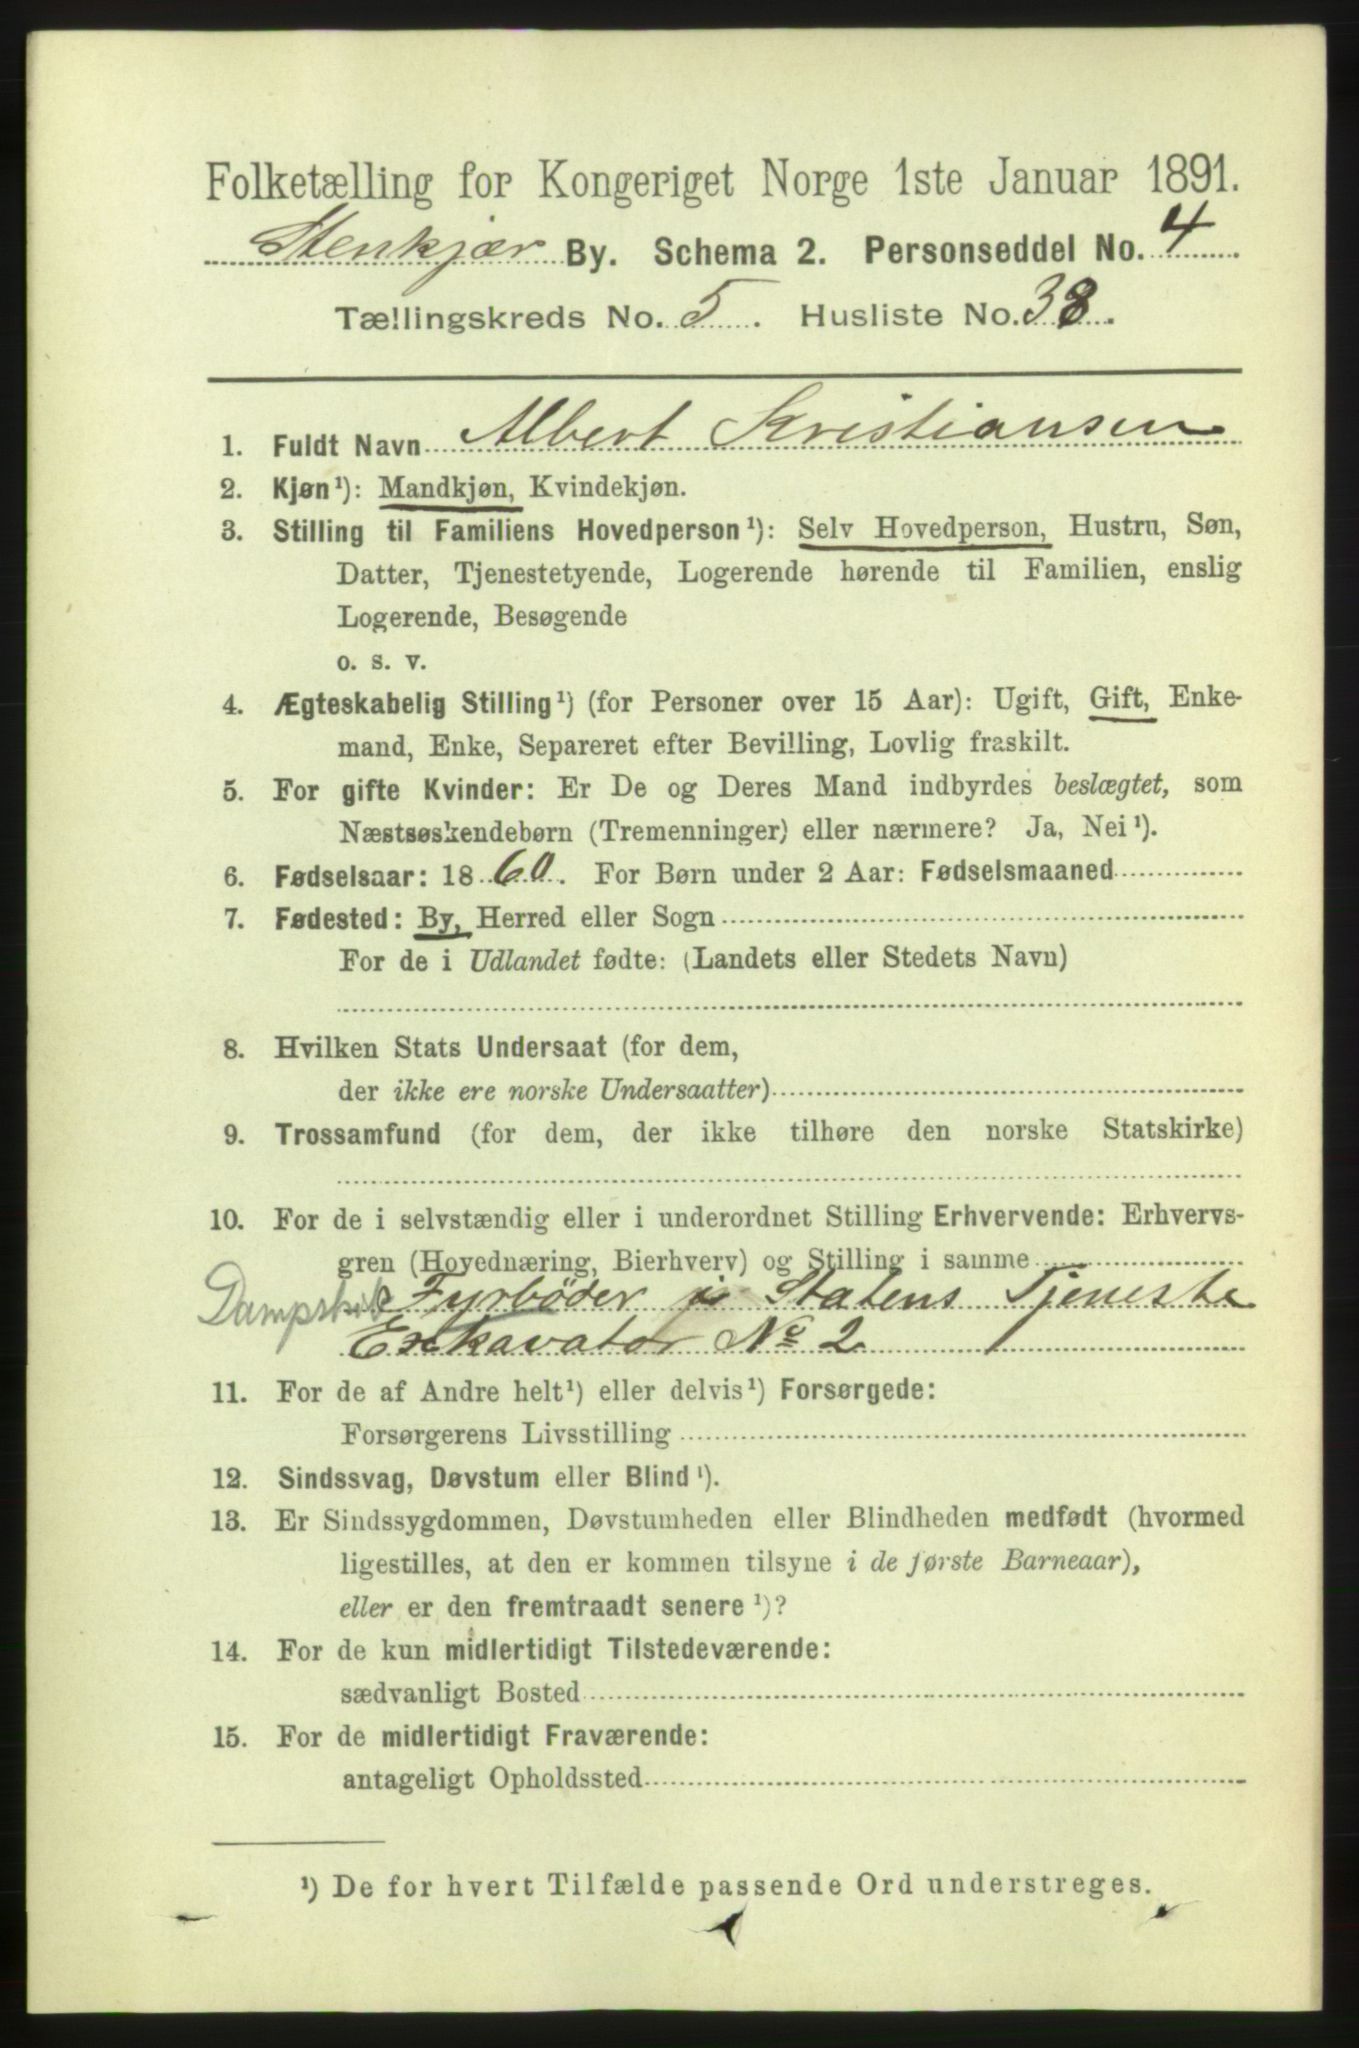 Folketælling for Kongeriget Norge 1ste Januar 1891.
Stenkjær By. Schema 2. Personseddel No. 4
Tællingskreds No. 5. Husliste No. 38.
1. Fuldt Navn Albert Kristiansen
2. Kjøn¹): Mandkjøn, Kvindekjøn.
3. Stilling til Familiens Hovedperson¹): Selv Hovedperson, Hustru, Søn,
Datter, Tjenestetyende, Logerende hørende til Familien, enslig
Logerende, Besøgende
o. s. v.
4. Ægteskabelig Stilling¹) (for Personer over 15 Aar): Ugift, Gift, Enke-
mand, Enke, Separeret efter Bevilling, Lovlig fraskilt.
5. For gifte Kvinder: Er De og Deres Mand indbyrdes beslægtet, som
Næstsøskendebørn (Tremenninger) eller nærmere? Ja, Nei¹).
6. Fødselsaar: 1860. For Børn under 2 Aar: Fødselsmaaned
7. Fødested: By, Herred eller Sogn
For de i Udlandet fødte: (Landets eller Stedets Navn)
8. Hvilken Stats Undersaat (for dem,
der ikke ere norske Undersaatter)
9. Trossamfund (for dem, der ikke tilhøre den norske Statskirke)
10. For de i selvstændig eller i underordnet Stilling Erhvervende: Erhvervs-
gren (Hovednæring, Bierhverv) og Stilling i samme
Dampskib Fyrböder i Statens Tjeneste
Exkavator No 2
11. For de af Andre helt¹) eller delvis¹) Forsørgede:
Forsørgerens Livsstilling
12. Sindssvag, Døvstum eller Blind¹).
13. Er Sindssygdommen, Døvstumheden eller Blindheden medfødt (hvormed
ligestilles, at den er kommen tilsyne i de første Barneaar),
eller er den fremtraadt senere¹)?
14. For de kun midlertidigt Tilstedeværende:
sædvanligt Bosted
15. For de midlertidigt Fraværende:
antageligt Opholdssted
¹) De for hvert Tilfælde passende Ord understreges.